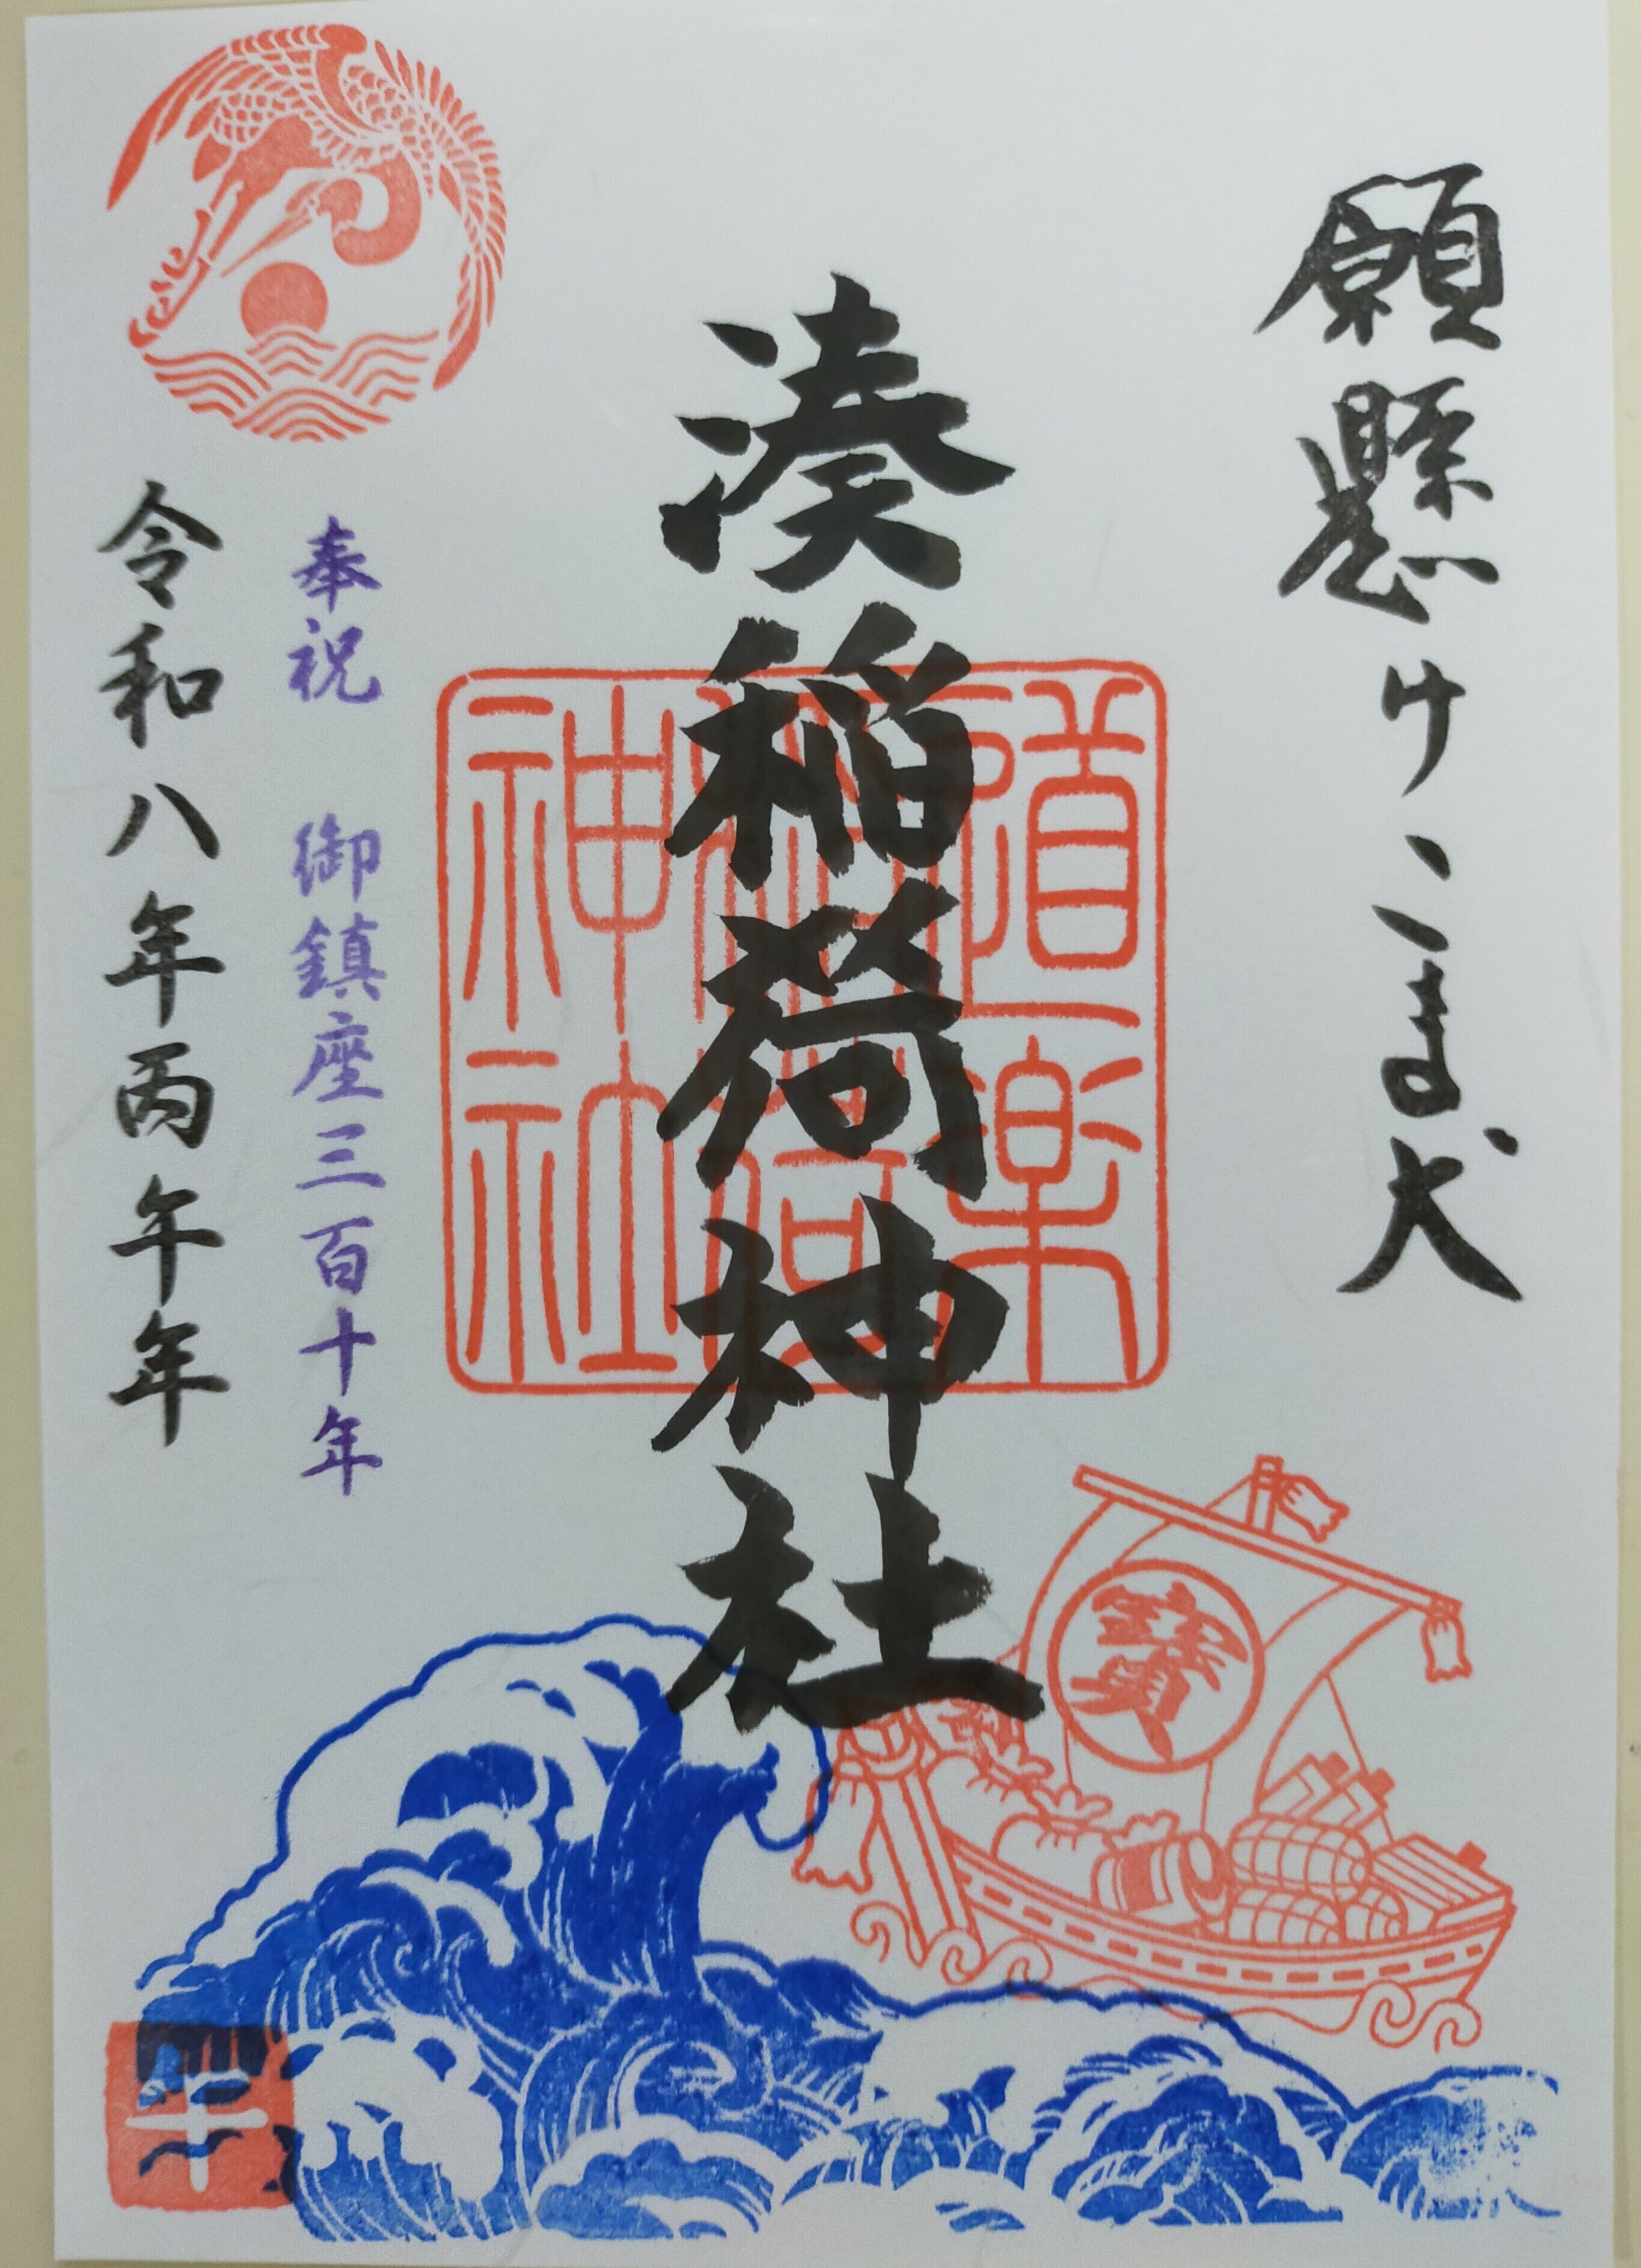 願懸けこま犬
湊稲荷神社
道楽
稲荷
神社
奉祝 御鎮座三百十年
令和八年丙午年
寶
午